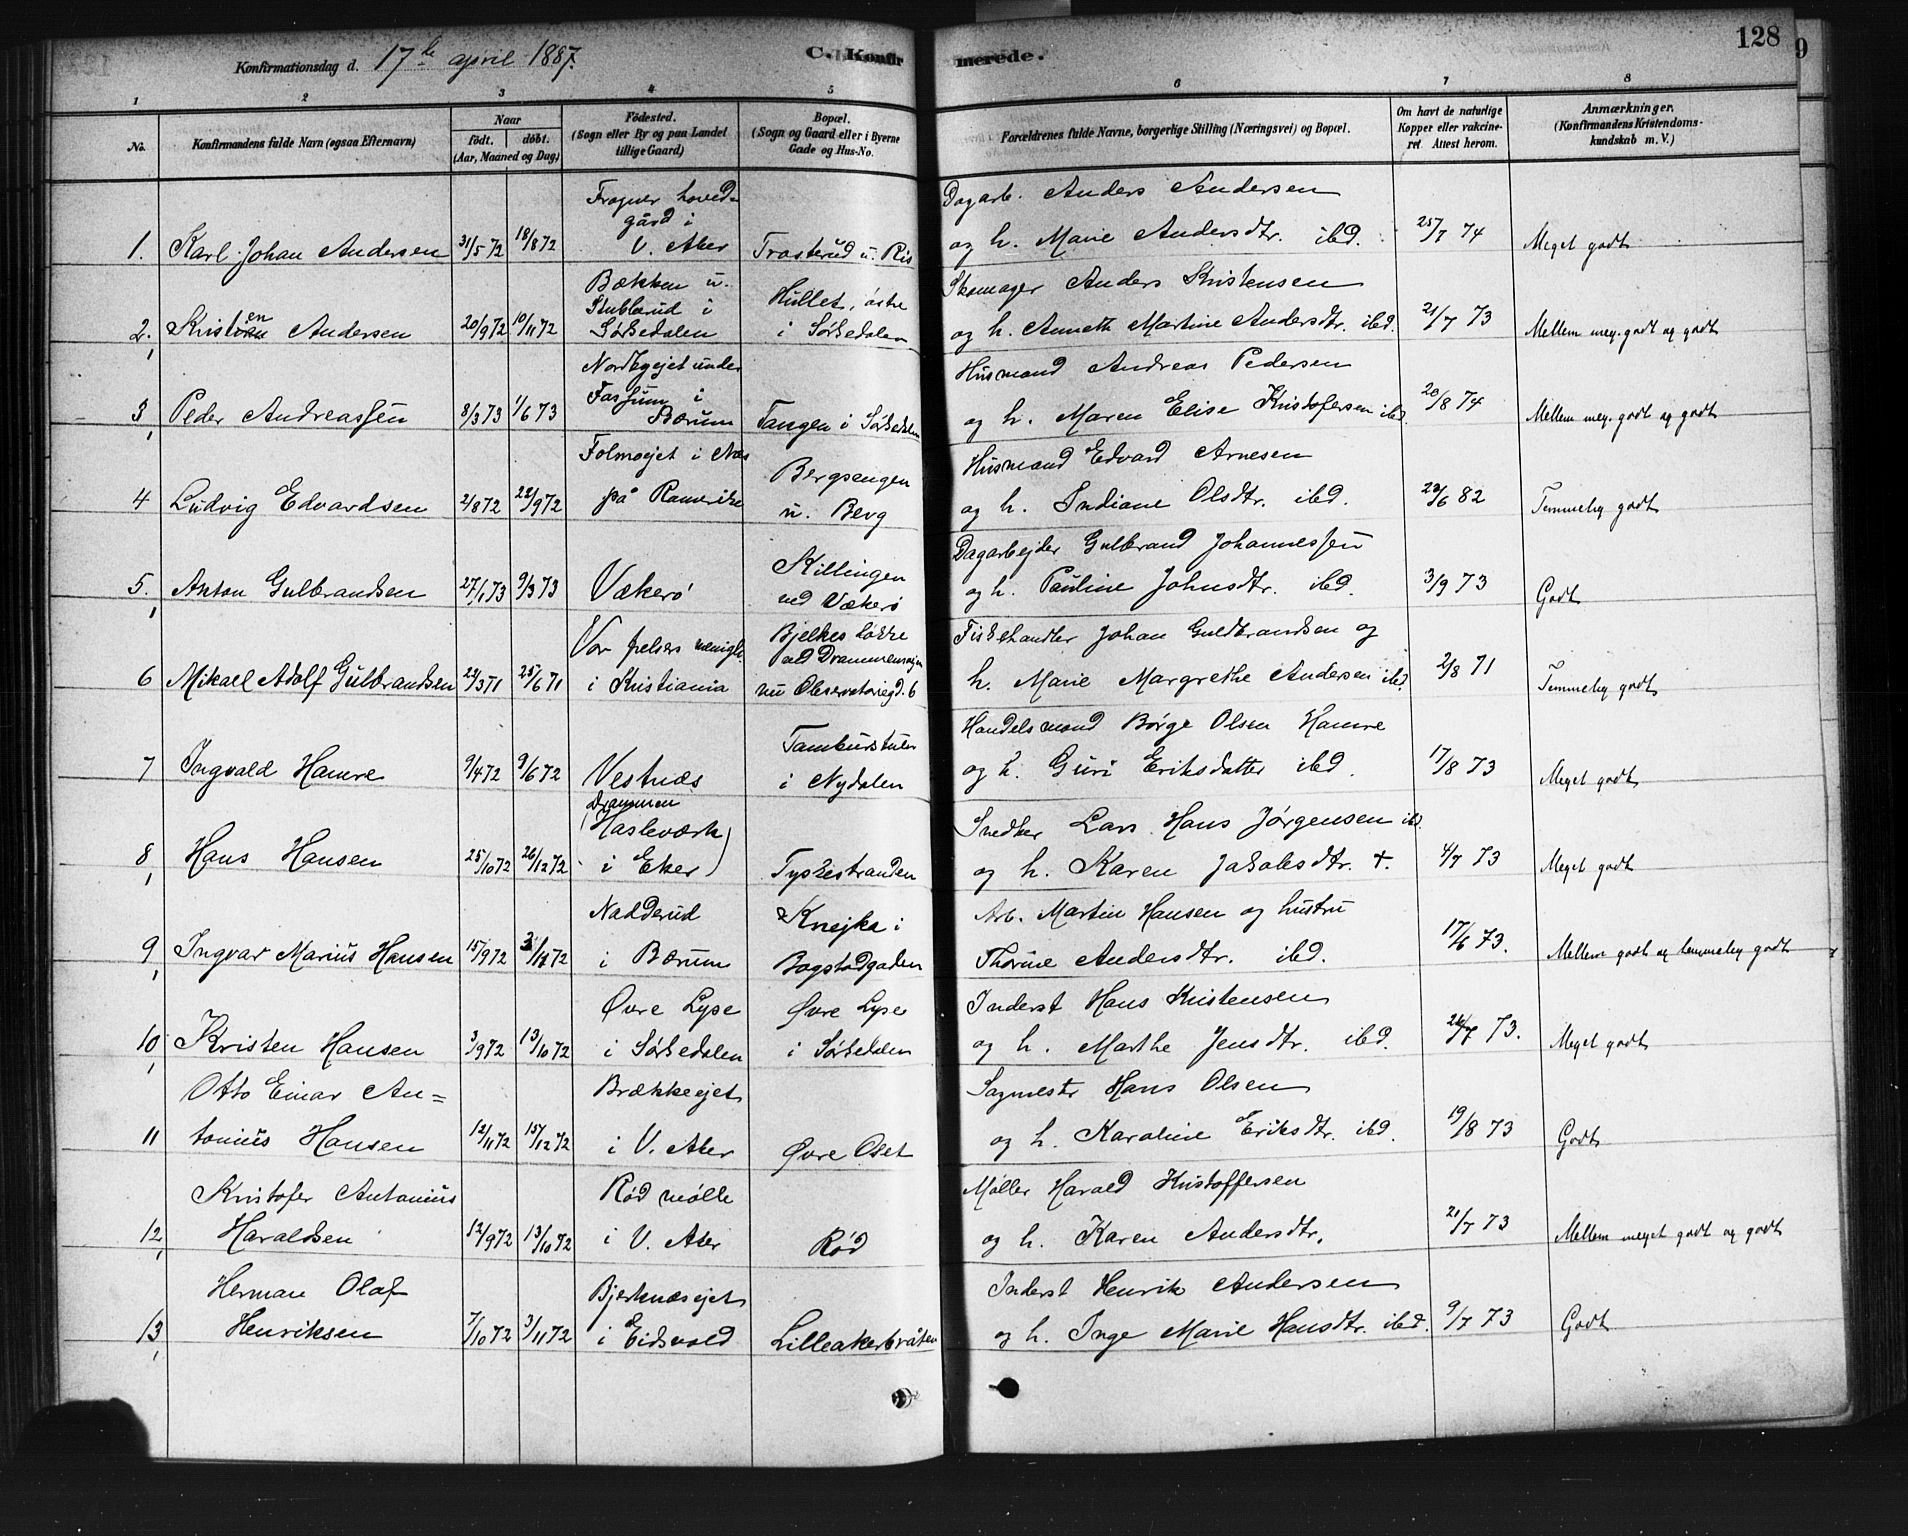 128
9
Konfirmationsdag d. 17de april 1887.
C. Konfirmerede.
1 2 3 4 5 6 7 8
No.
Konfirmandens fulde Navn (ogsaa Efternavn)
Naar
født. døbt.
(Aar, Maaned og Dag)
Fødested.
(Sogn eller By og paa Landet
tillige Gaard)
Bopæl.
(Sogn og Gaard eller i Byerne
Gade og Hus-No.
Forældrenes fulde Navne, borgerlige Stilling (Næringsvei) og Bopæl.
Om havt de naturlige
Kopper eller vakcine-
ret Attest herom.
Anmærkninger.
(Konfirmandens Kristendoms-
kundskab m. V.)
Frogner hoved-
gård i
Dagarb. Anders Andersen
1. Karl Johan Andersen 31/5 72 18/8 72 V. Aker Trosterud u. Ris og h. Marie Andersdtr. ibd. 25/7 74 Meget godt
Bækken u.
Stubberud i Hullet, østre Skomager Anders Kristensen
2. Kristen Andersen 20/9 72 10/11 72 Sørkedalen i Sørkedalen og h. Annette Martine Andersdtr. ibd. 21/7 73 Mellem meg. godt og godt
Nordbyejet under
Fossum i Husmand Andreas Pedersen
3 Peder Andreassen 8/3 73 1/6 73 Bærum Tangen i Sørkedalen og h. Maren Elise Kristofersen ibd. 20/8 74 Mellem meg. godt og godt
Folmoejet i Næs Bergsengen Husmand Edvard Arnesen
4 Ludvig Edvardsen 2/8 72 22/9 72 på Romerike u. Berg og h. Indiane Olsdtr. ibd. 23/6 82 Temmelig godt
Killingen Dagarbejder Gulbrand Johannessen
5. Anton Gulbrandsen 27/1 73 9/3 73 Vækerø ved Vækerø og h. Pauline Johnsdtr. ibd. 3/9 73 Godt
Vor frelsers menigh. Bjelkes løkke
ved Drammensvejen Fiskehandler Johan Guldbrandsen og
6 Mikael Adolf Gulbrandsen 22/3 71 25/6 71 i Kristiania nu Observatoriegd. 6 h. Marie Margrethe Andersen ibd. 2/8 71 Temmelig godt
Tamburstuen Handelsmand Børge Olsen Hamre
7 Ingvald Hamre 9/4 72 9/6 72 Vestnæs i Nydalen og h. Guri Eriksdatter ibd. 17/8 73 Meget godt
Drammen
(Hasleværk Snedker Lars Hans Jørgensen ibd.
8 Hans Hansen 25/10 72 26/12 72 i Eker) Tyskestranden og h. Karen Jakobsdtr. +. 4/7 73 Meget godt
Nadderud Knejka i Arb. Martin Hansen og hustru
9 Ingvar Marius Hansen 15/9 72 3/11 72 i Bærum Bogstadgaden Thorine Andersdtr. ibd. 17/6 73. Mellem godt og temmelig godt
Øvre Lyse Øvre Lyse Inderst Hans Kristensen
10 Kristen Hansen 3/9 72 13/10 72 i Sørkedalen i Sørkedalen og h. Marthe Jensdtr. ibd. 26/7 73. Meget godt
Otto Einar An= Brækkeejet Sagmestr Hans Olsen
11 tonius Hansen 12/11 72 15/12 72 i V. Aker Øvre Oset og h. Karoline Eriksdtr. ibd. 19/8 73 Godt
Kristofer Antonius Rød mølle Møller Harald Kristoffersen
12 Haraldsen 12/9 72 13/10 72 i V. Aker Rød og h. Karen Andersdtr. 21/7 73 Mellem meget godt og godt
Herman Olaf Bjerknæsejet Inderst Henrik Andersen
13 Henriksen 7/10 72 3/11 72 i Eidsvold Lilleakerbråten og h. Inge Marie Hansdtr. ibd. 9/7 73 Godt